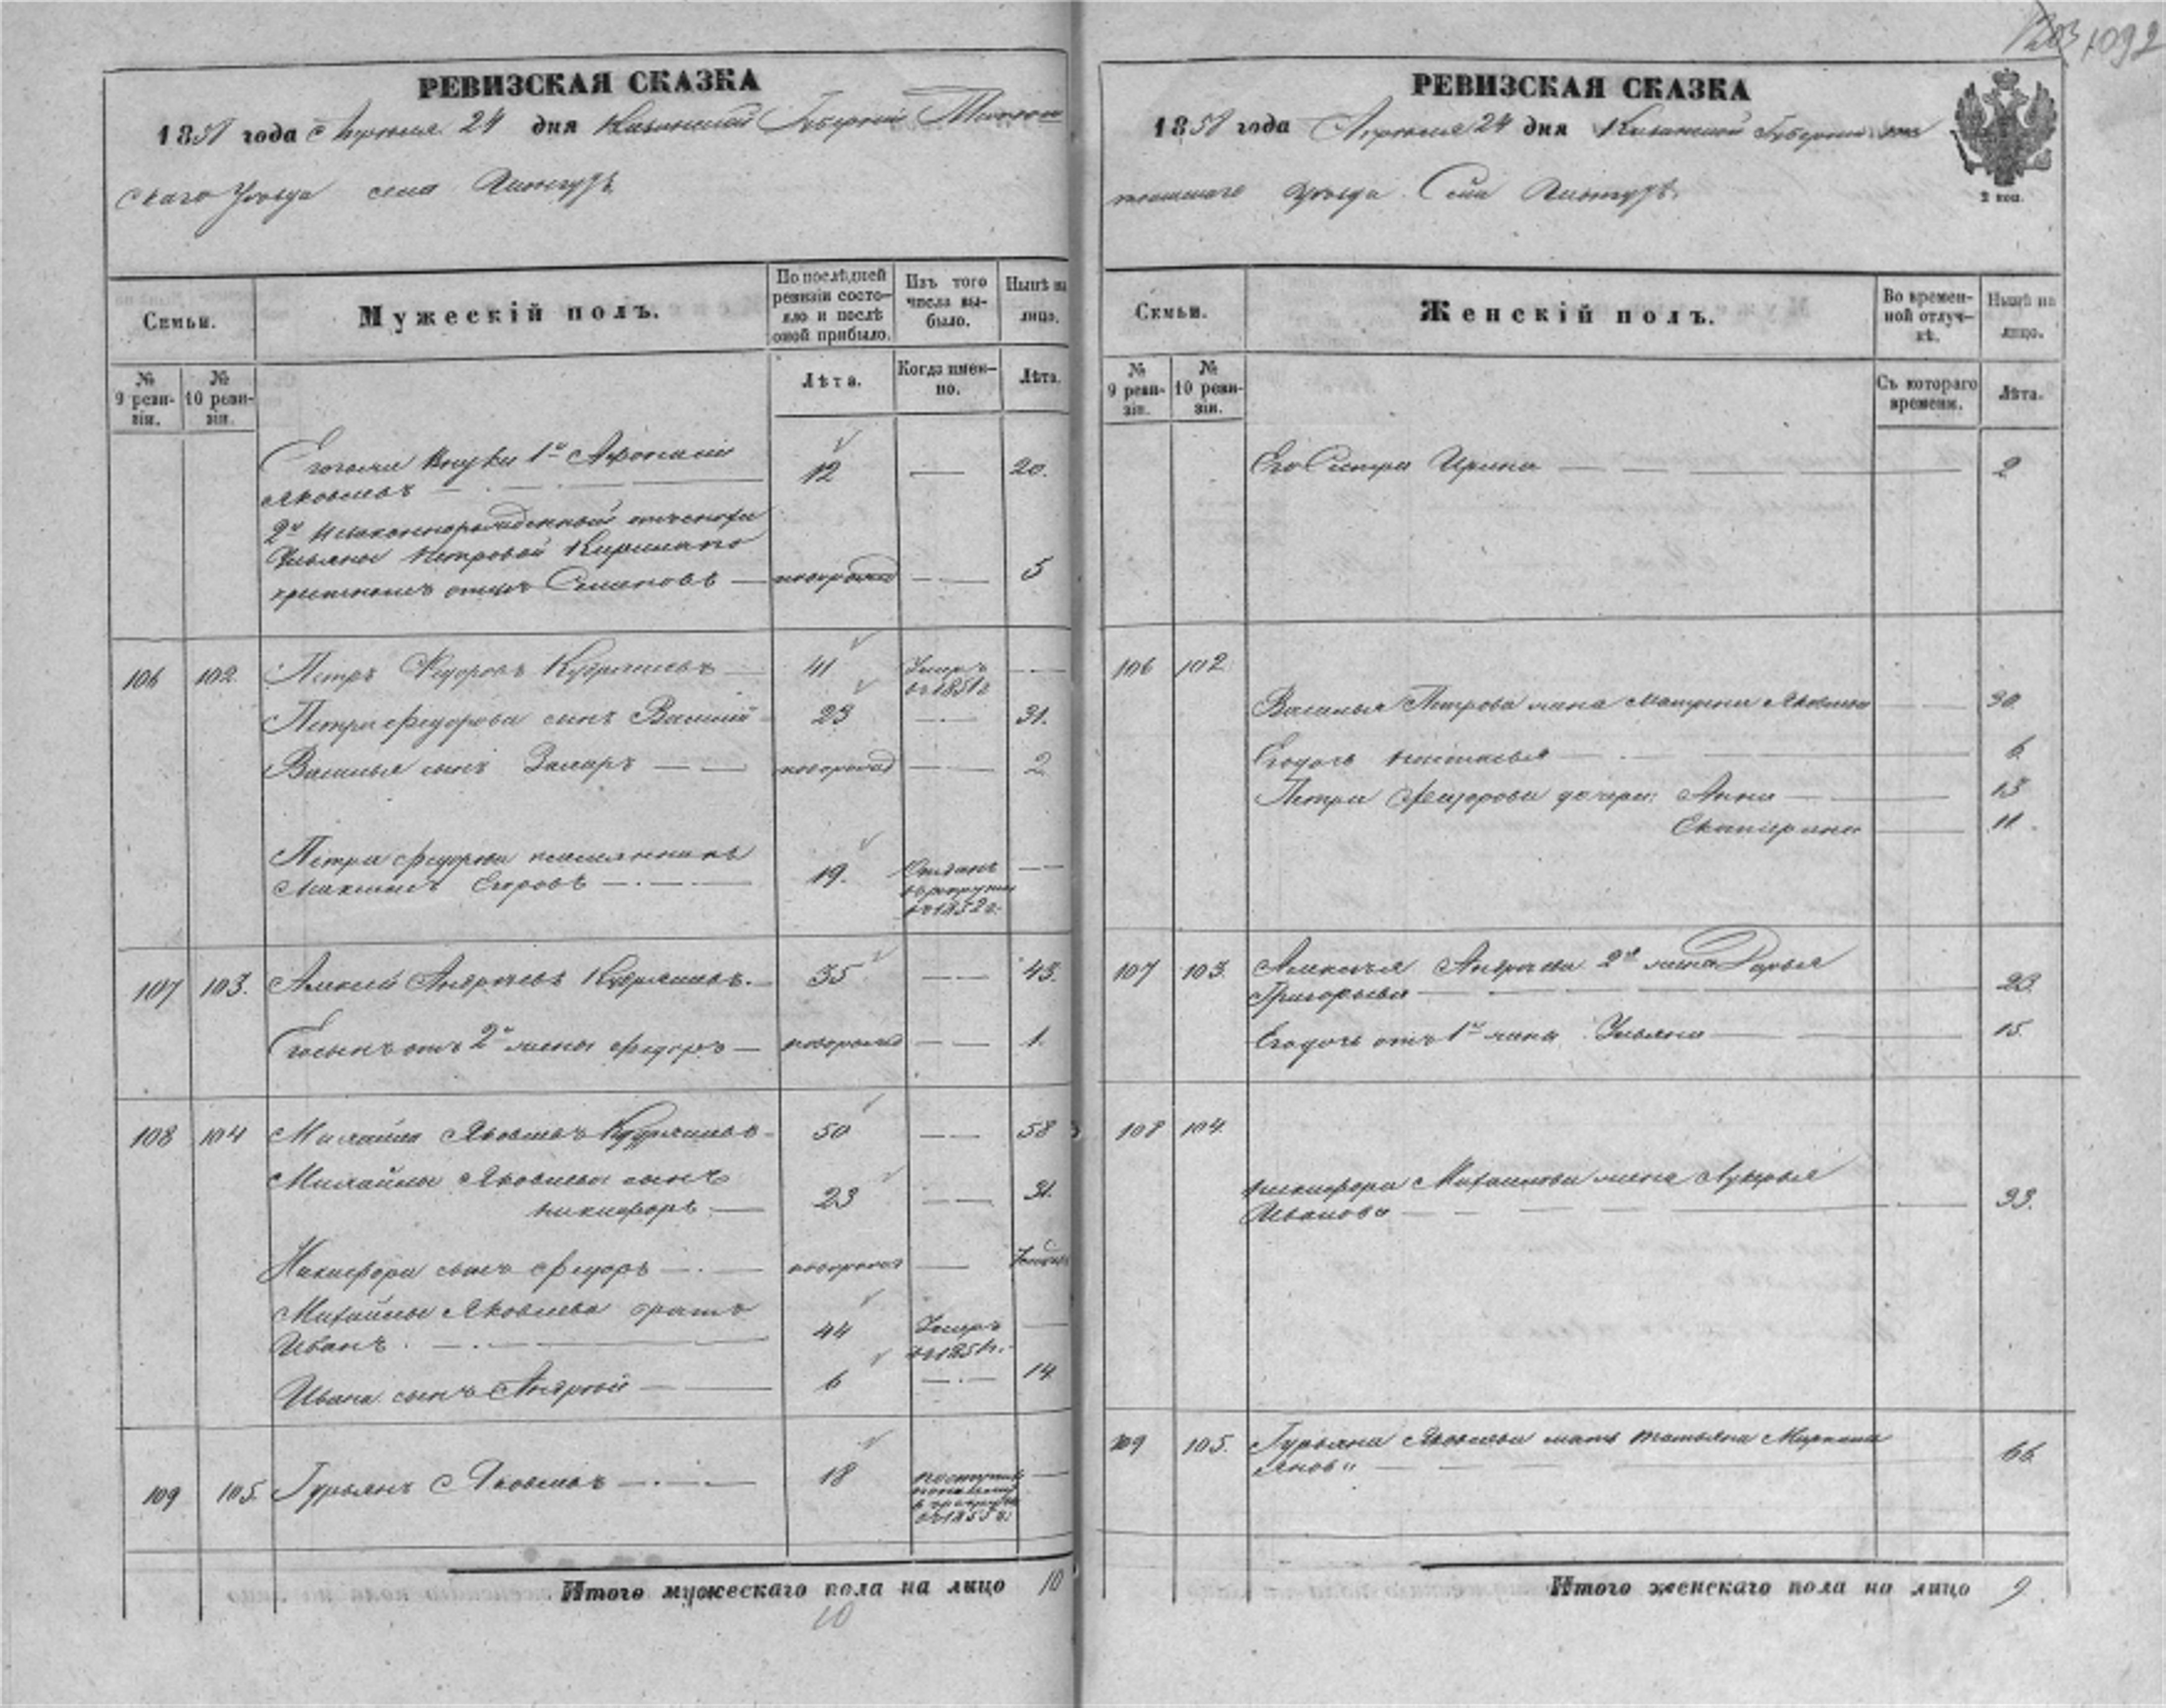 1092
РЕВИЗСКАЯ СКАЗКА
1858 года Апреля 24 дня Казанской Губернии
скаго Уѣзда села
Семьи.
Мужескій полъ.
По послѣдней ревизіи состояло и послѣ оной прибыло.
Изъ того числа выбыло.
Нынѣ на лицо.
№ 9 ревизіи.
№ 10 ревизіи.
Лѣта.
Когда именно.
Лѣта.
Егоже внуки 1й Афонасій
Яковлевъ 12 20.
2й Незаконнорожденный отъ
Ульяны Петровой Кирилапо
отцъ Семеновъ новорожд 5
106 102. Петръ Федоровъ Кудряшевъ 41 Умеръ въ 1851 г
Петра Федорова сынъ Василій 23 31.
Василья сынъ новорожд 2
Петра Федорова племянникъ
Максимъ Егоровъ 19. Отданъ въ рекруты въ 1852 г.
107 103. Алексей Андреевъ Кудряшевъ. 35 43.
Егосынъ отъ 2й жены Федоръ новорожд 1.
108 104 Михайла Яковлевъ Кудряшевъ 50 58
Михайлы Яковлева сынъ
Никифоръ 23 31.
Никифора сынъ Федоръ новорожд
Михайлы Яковлева братъ
Иванъ. 44 Умеръ
Ивана сынъ Андрей 6 14
109 105. Гурьянъ Яковлевъ 18 поступилъ въ рекруты въ 1855 г.
Итого мужескаго пола на лицо 10
10
РЕВИЗСКАЯ СКАЗКА
1858 года Апреля 24 дня Казанской Губернии
уѣзда Села
2 коп.
Семьи.
Женскій полъ.
Во временной отлучкѣ.
Нынѣ на лицо.
№ 9 ревизіи.
№ 10 ревизіи.
Съ котораго времени.
Лѣта.
Его Сестра Ирина 2
106 102
Василья Петрова жена Матрена Яковлева 30.
Егодочь Настасья 6
Петра Федорова дочери: Анна 13
Екатерина 11.
107 103. Алексея Андреева 2я жена Дарья
Григорьева 23.
Егодочь отъ 1й жены Ульяна 15.
108 104.
Никифора Михайлова жена Лукерья
Иванова 33.
109 105. Гурьяна Яковлева мать Татьяна
66.
Итого женскаго пола на лицо 9.